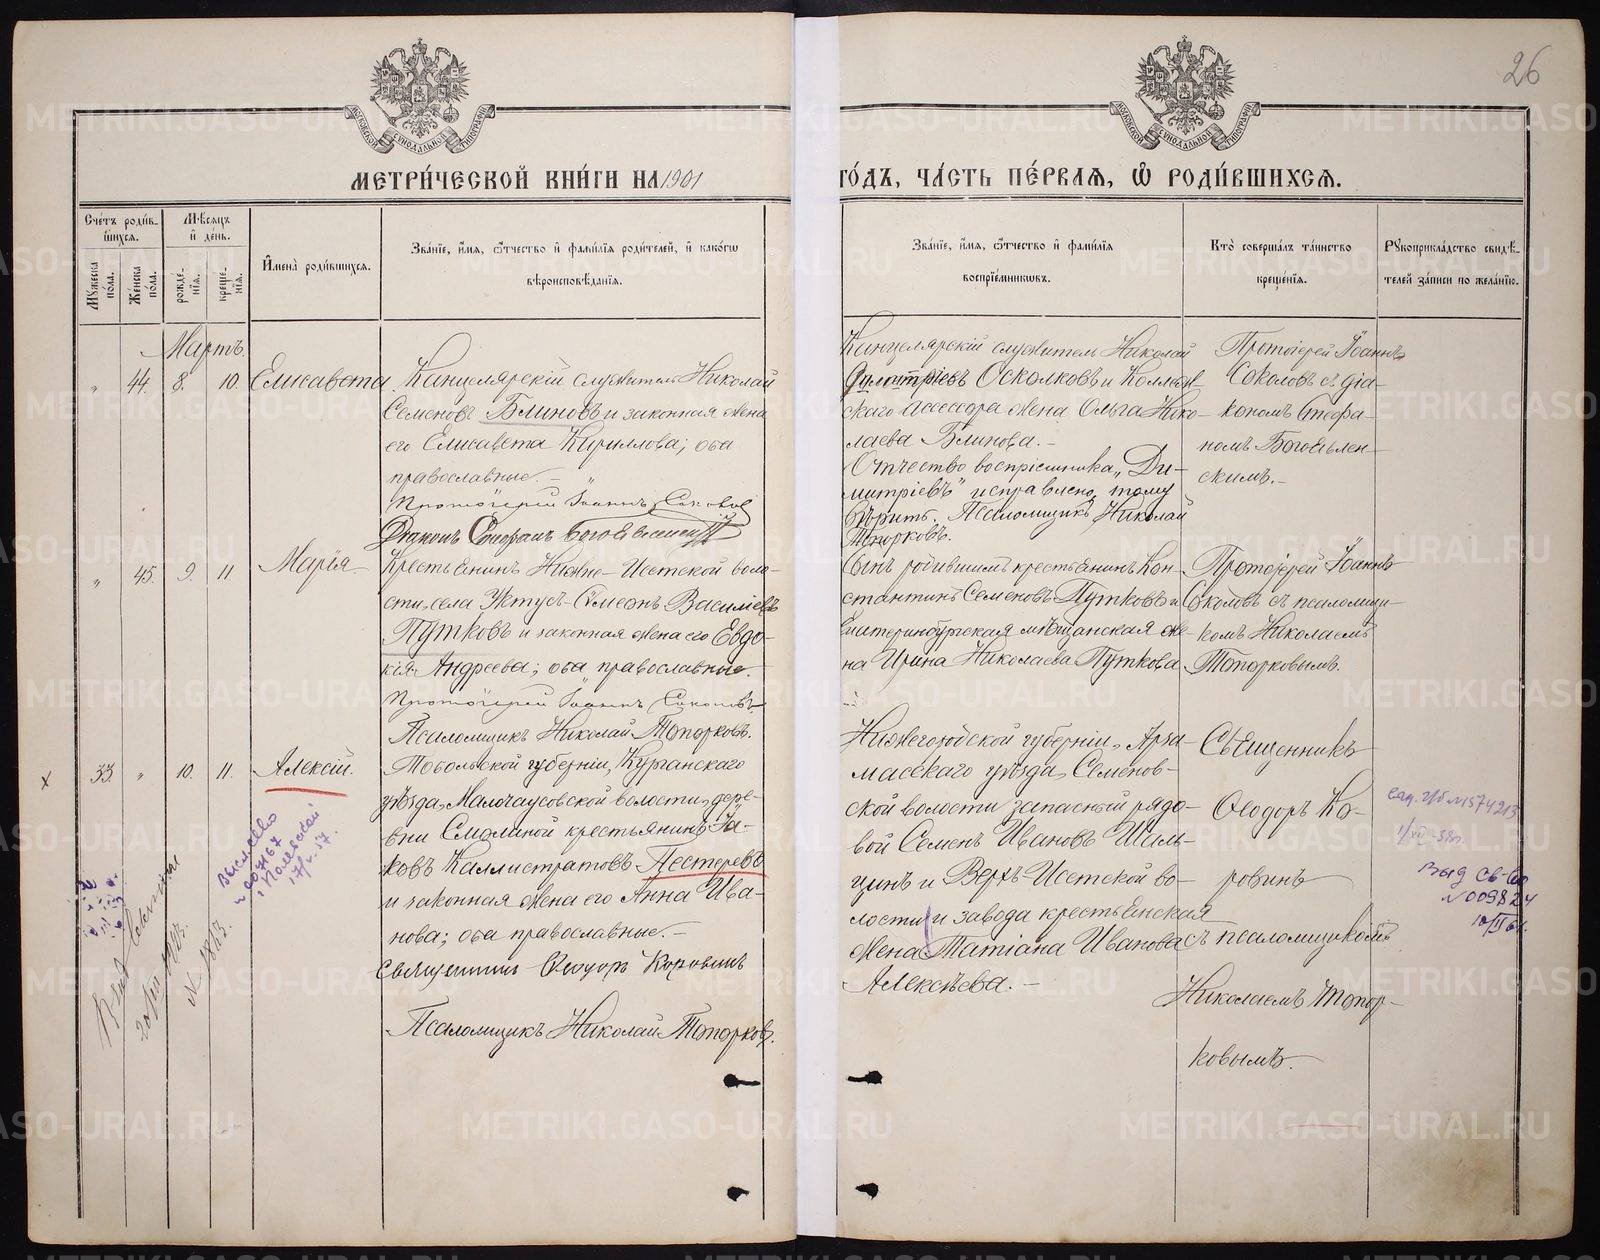 26
МОСКОВСКОЙ СѴНОДАЛЬНОЙ ТИПОГРАФІИ
МОСКОВСКОЙ СѴНОДАЛЬНОЙ ТИПОГРАФІИ
МЕТРИ́ЧЕСКОЙ КНИ́ГИ НА 1901
ГО́ДЪ, ЧА́СТЬ ПЕ́РВАЯ, Ѡ РОДИ́ВШИХСЯ.
Сче́тъ роди́в-
шихся.
Му́жеска по́ла.
Же́нска по́ла.
Мѣ́сяцъ
и҆ де́нь.
рожде-
нїя.
креще-
нїя.
И҆мена̀ роди́вшихся.
Зва́нїе, и҆́мя, ѻ҆́тчество и҆ фами́лїя роди́телей, и҆ како́гѡ
вѣроисповѣ́данїя.
Зва́нїе, и҆́мя, ѻ҆́тчество и҆ фами́лїя
воспрїе́мникѡвъ.
Кто̀ соверша́лъ та́инство
креще́нїя.
Рꙋкоприкла́дство свидѣ́-
телей за́писи по жела́нїю.
Мартъ.
" 44. 8. 10. Елисавета
Канцелярскій служитель Николай
Семеновъ Блиновъ и законная жена
его Елисавета Кириллова; оба
православные. –
Протоіерей Іоаннъ Соколовъ
Діаконъ Стефанъ Богоявленскій
Канцелярскій служитель Николай
Димитріевъ Осколковъ и Коллеж-
скаго ассесора жена Ольга Нико-
лаева Блинова. –
Отчество воспріемника „Ди-
митріевъ" исправлено, тому
вѣрить. Псаломщикъ Николай
Топорковъ.
Протоіерей Іоаннъ
Соколовъ съ діа-
кономъ Стефа-
номъ Богоявлен-
скимъ. –
" 45. 9. 11 Марія
Крестьянинъ Нижне-Исетской воло-
сти, села Уктусъ Сѵмеонъ Василіевъ
Путковъ и законная жена его Евдо-
кія Андреева; оба православные.
Протоіерей Іоаннъ Соколовъ.
Псаломщикъ Николай Топорковъ.
Сынъ родившимъ крестьянинъ Кон-
стантинъ Семеновъ Путковъ и
Екатеринбургская мѣщанская же-
на Ирина Николаева Путкова
Протоіерей Іоаннъ
Соколовъ съ псаломщи-
комъ Николаемъ
Топорковымъ.
x 33. " 10. 11. Алексій.
Тобольской губерніи, Курганскаго
уѣзда, Малочаусовской волости, дере-
вни Смолиной крестьянинъ Іа-
ковъ Каллистратовъ Пестеревъ
и законная жена его Анна Ива-
нова; оба православные. –
Священникъ Ѳеодоръ Коровинъ
Псаломщикъ Николай Топорковъ.
Нижегородской губерніи, Арза-
масскаго уѣзда, Семенов-
ской волости запасный рядо-
вой Семенъ Ивановъ Шиль-
цинъ и Верхъ Исетской во-
лости и завода крестьянская
жена Татіана Иванова
Алексѣева. –
Священникъ
Ѳеодоръ Ко-
ровинъ
съ псаломщикомъ
Николаемъ Топор-
ковымъ.
Выслано
007167
г Полевской
№ 1863.
№ 009824